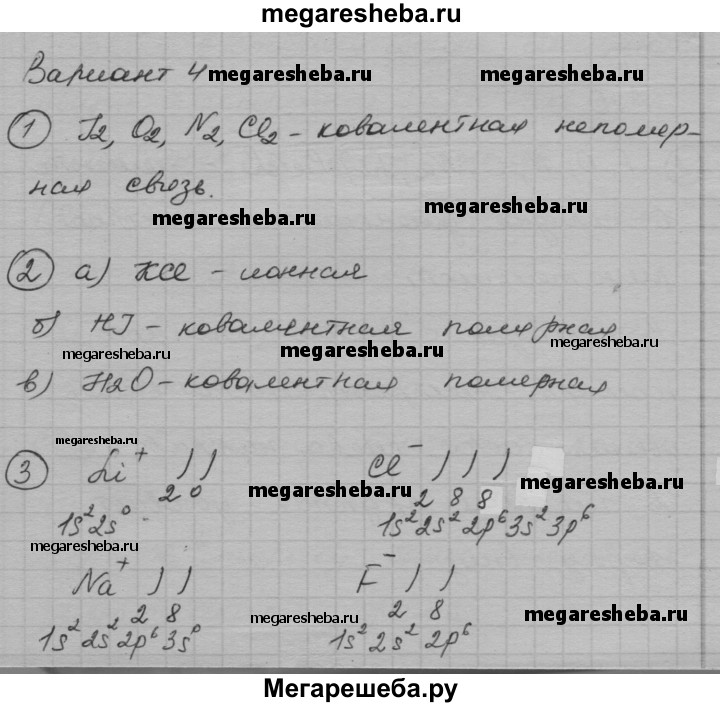 megaresheba.ru
Вариант 4 megaresheba.ru megaresheba.ru
① J2, O2, N2, Cl2 - ковалентная непомер-
ная связь.
megaresheba.ru megaresheba.ru
② а) KCl - ионная
б) HJ - ковалентная полярная
megaresheba.ru megaresheba.ru megaresheba.ru
в) H2O - ковалентная померная
megaresheba.ru
③ Li⁺ ) ) Cl⁻ ) ) )
megaresheba.ru megaresheba.ru
2 0 2 8 8
1s²2s⁰ 1s²2s²2p⁶3s²3p⁶
megaresheba.ru
Na⁺ ) ) F⁻ ) )
2 8 2 8
megaresheba.ru megaresheba.ru
1s²2s²2p⁶3s⁰ 1s²2s²2p⁶
Мегарешеба.ру